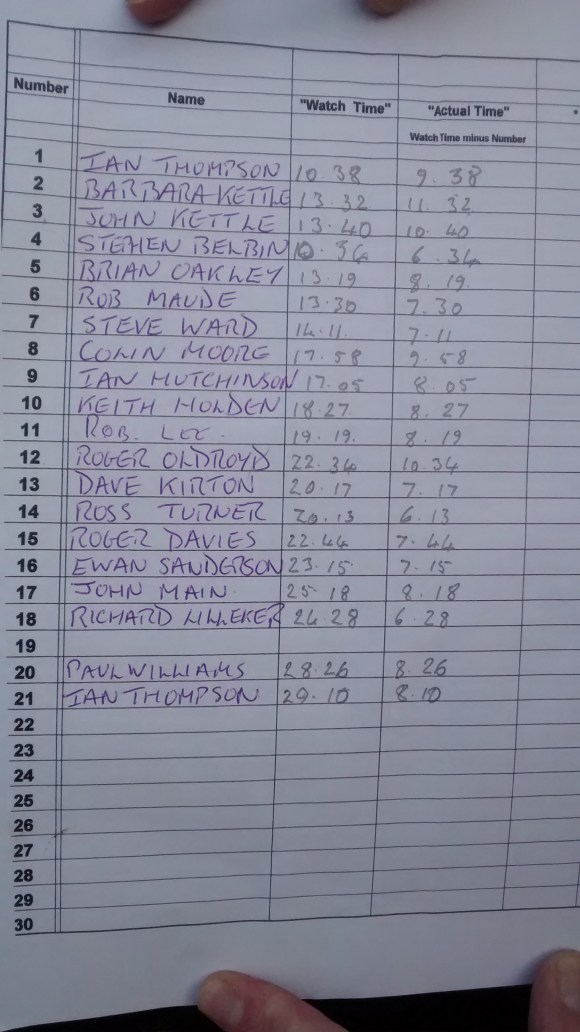 Number Name "Watch Time" "Actual Time"
Watch Time minus Number
1 IAN THOMPSON 10.38 9.38
2 BARBARA KETTLE 13.32 11.32
3 JOHN KETTLE 13.40 10.40
4 STEPHEN BELBIN 10.34 6.34
5 BRIAN OAKLEY 13.19 8.19
6 ROB MAUDE 13.30 7.30
7 STEVE WARD 14.11 7.11
8 COLIN MOORE 17.58 9.58
9 IAN HUTCHINSON 17.05 8.05
10 KEITH HOLDEN 18.27 8.27
11 ROB. LEE. 19.19. 8.19
12 ROGER OLDROYD 22.34 10.34
13 DAVE KIRTON 20.17 7.17
14 ROSS TURNER 20.13 6.13
15 ROGER DAVIES 22.44 7.44
16 EWAN SANDERSON 23.15 7.15
17 JOHN MAIN. 25.18 8.18
18 RICHARD LILLEKER 24.28 6.28
19
20 PAUL WILLIAMS 28.26 8.26
21 IAN THOMPSON 29.10 8.10
22
23
24
25
26
27
28
29
30